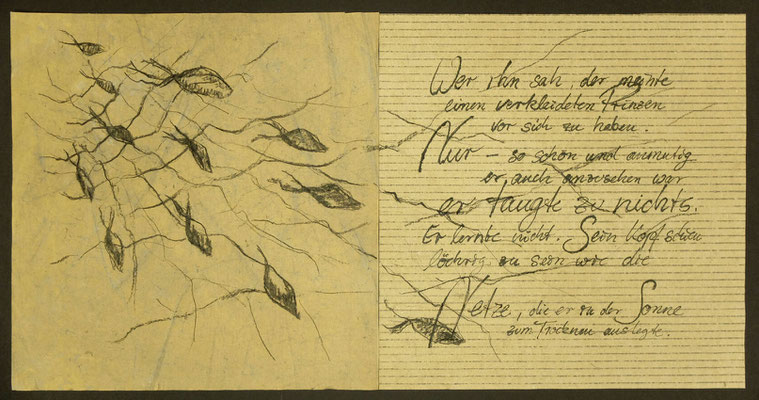 Wer ihn sah, der meinte
einen verkleideten Prinzen
vor sich zu haben.
Nur – so schön und anmutig
er auch anzusehen war
er taugte zu nichts.
Er lernte nicht. Sein Kopf schien
löchrig zu sein wie die
Netze, die er in der Sonne
zum Trocknen auslegte.